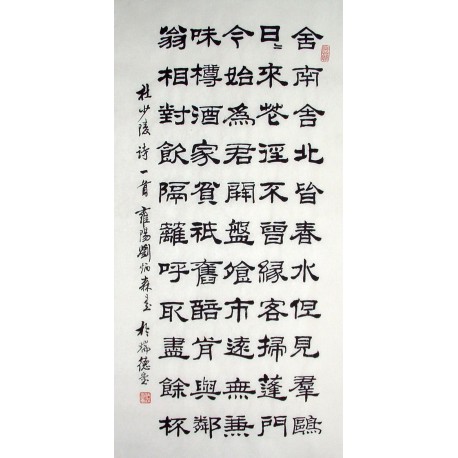 舍南舍北皆春水但見羣鷗
日〻來花徑不曾緣客掃蓬門
今始為君開盤飧市遠無兼
味樽酒家貧祇舊醅肯與鄰
翁相對飲隔籬呼取盡餘杯
杜少陵诗一首 雍陽劉炳森書於瑞德